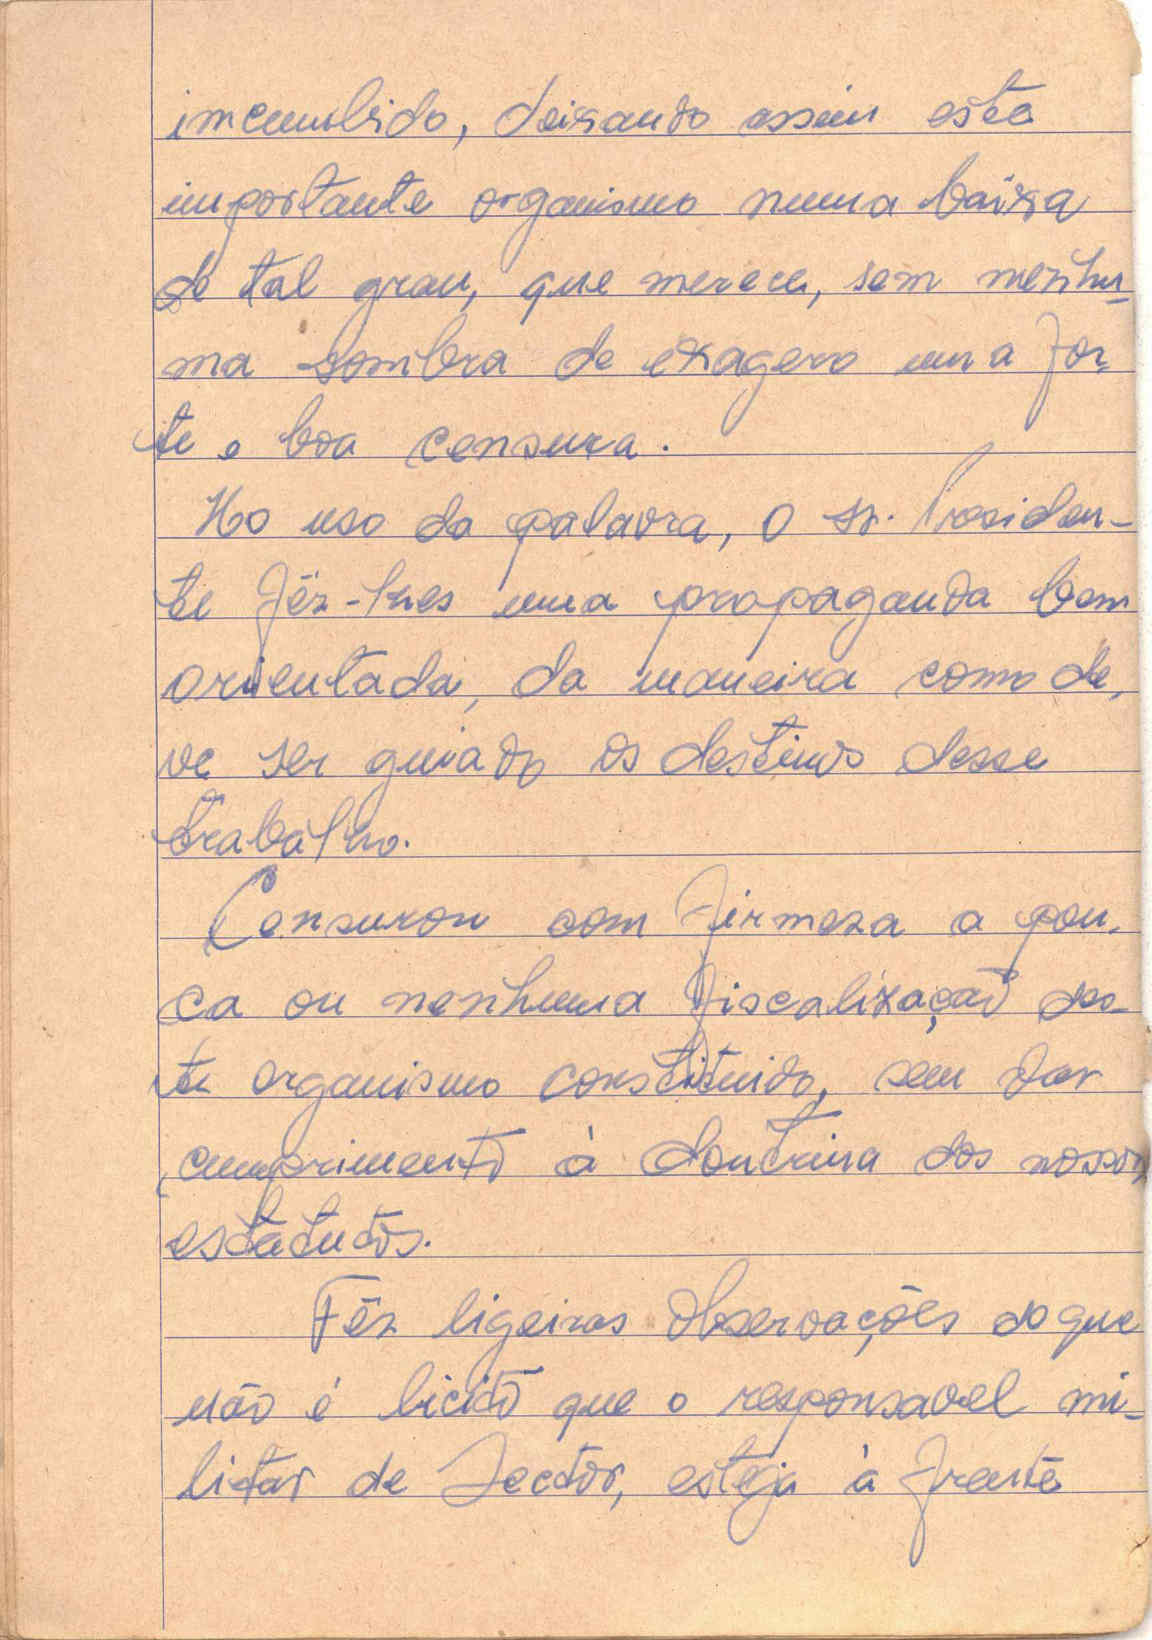 imcumbido, deixando assim este
importante organismo numa baixa
de tal grau, que merece, sem nenhu-
ma sombra de exagero uma for-
te e boa censura.
No uso da palavra, o sr. Presiden-
te féz-lhes uma propaganda bem
orientada, da maneira como de-
ve ser guiado os destinos desse
trabalho.
Censurou com firmeza a pou-
ca ou nenhuma fiscalização des-
te organismo constituido, sem dar
cumprimento à doutrina dos nossos
estatutos.
Fêz ligeiras observações do que
não é licito que o responsavel mi-
litar de Sector, esteja à frente